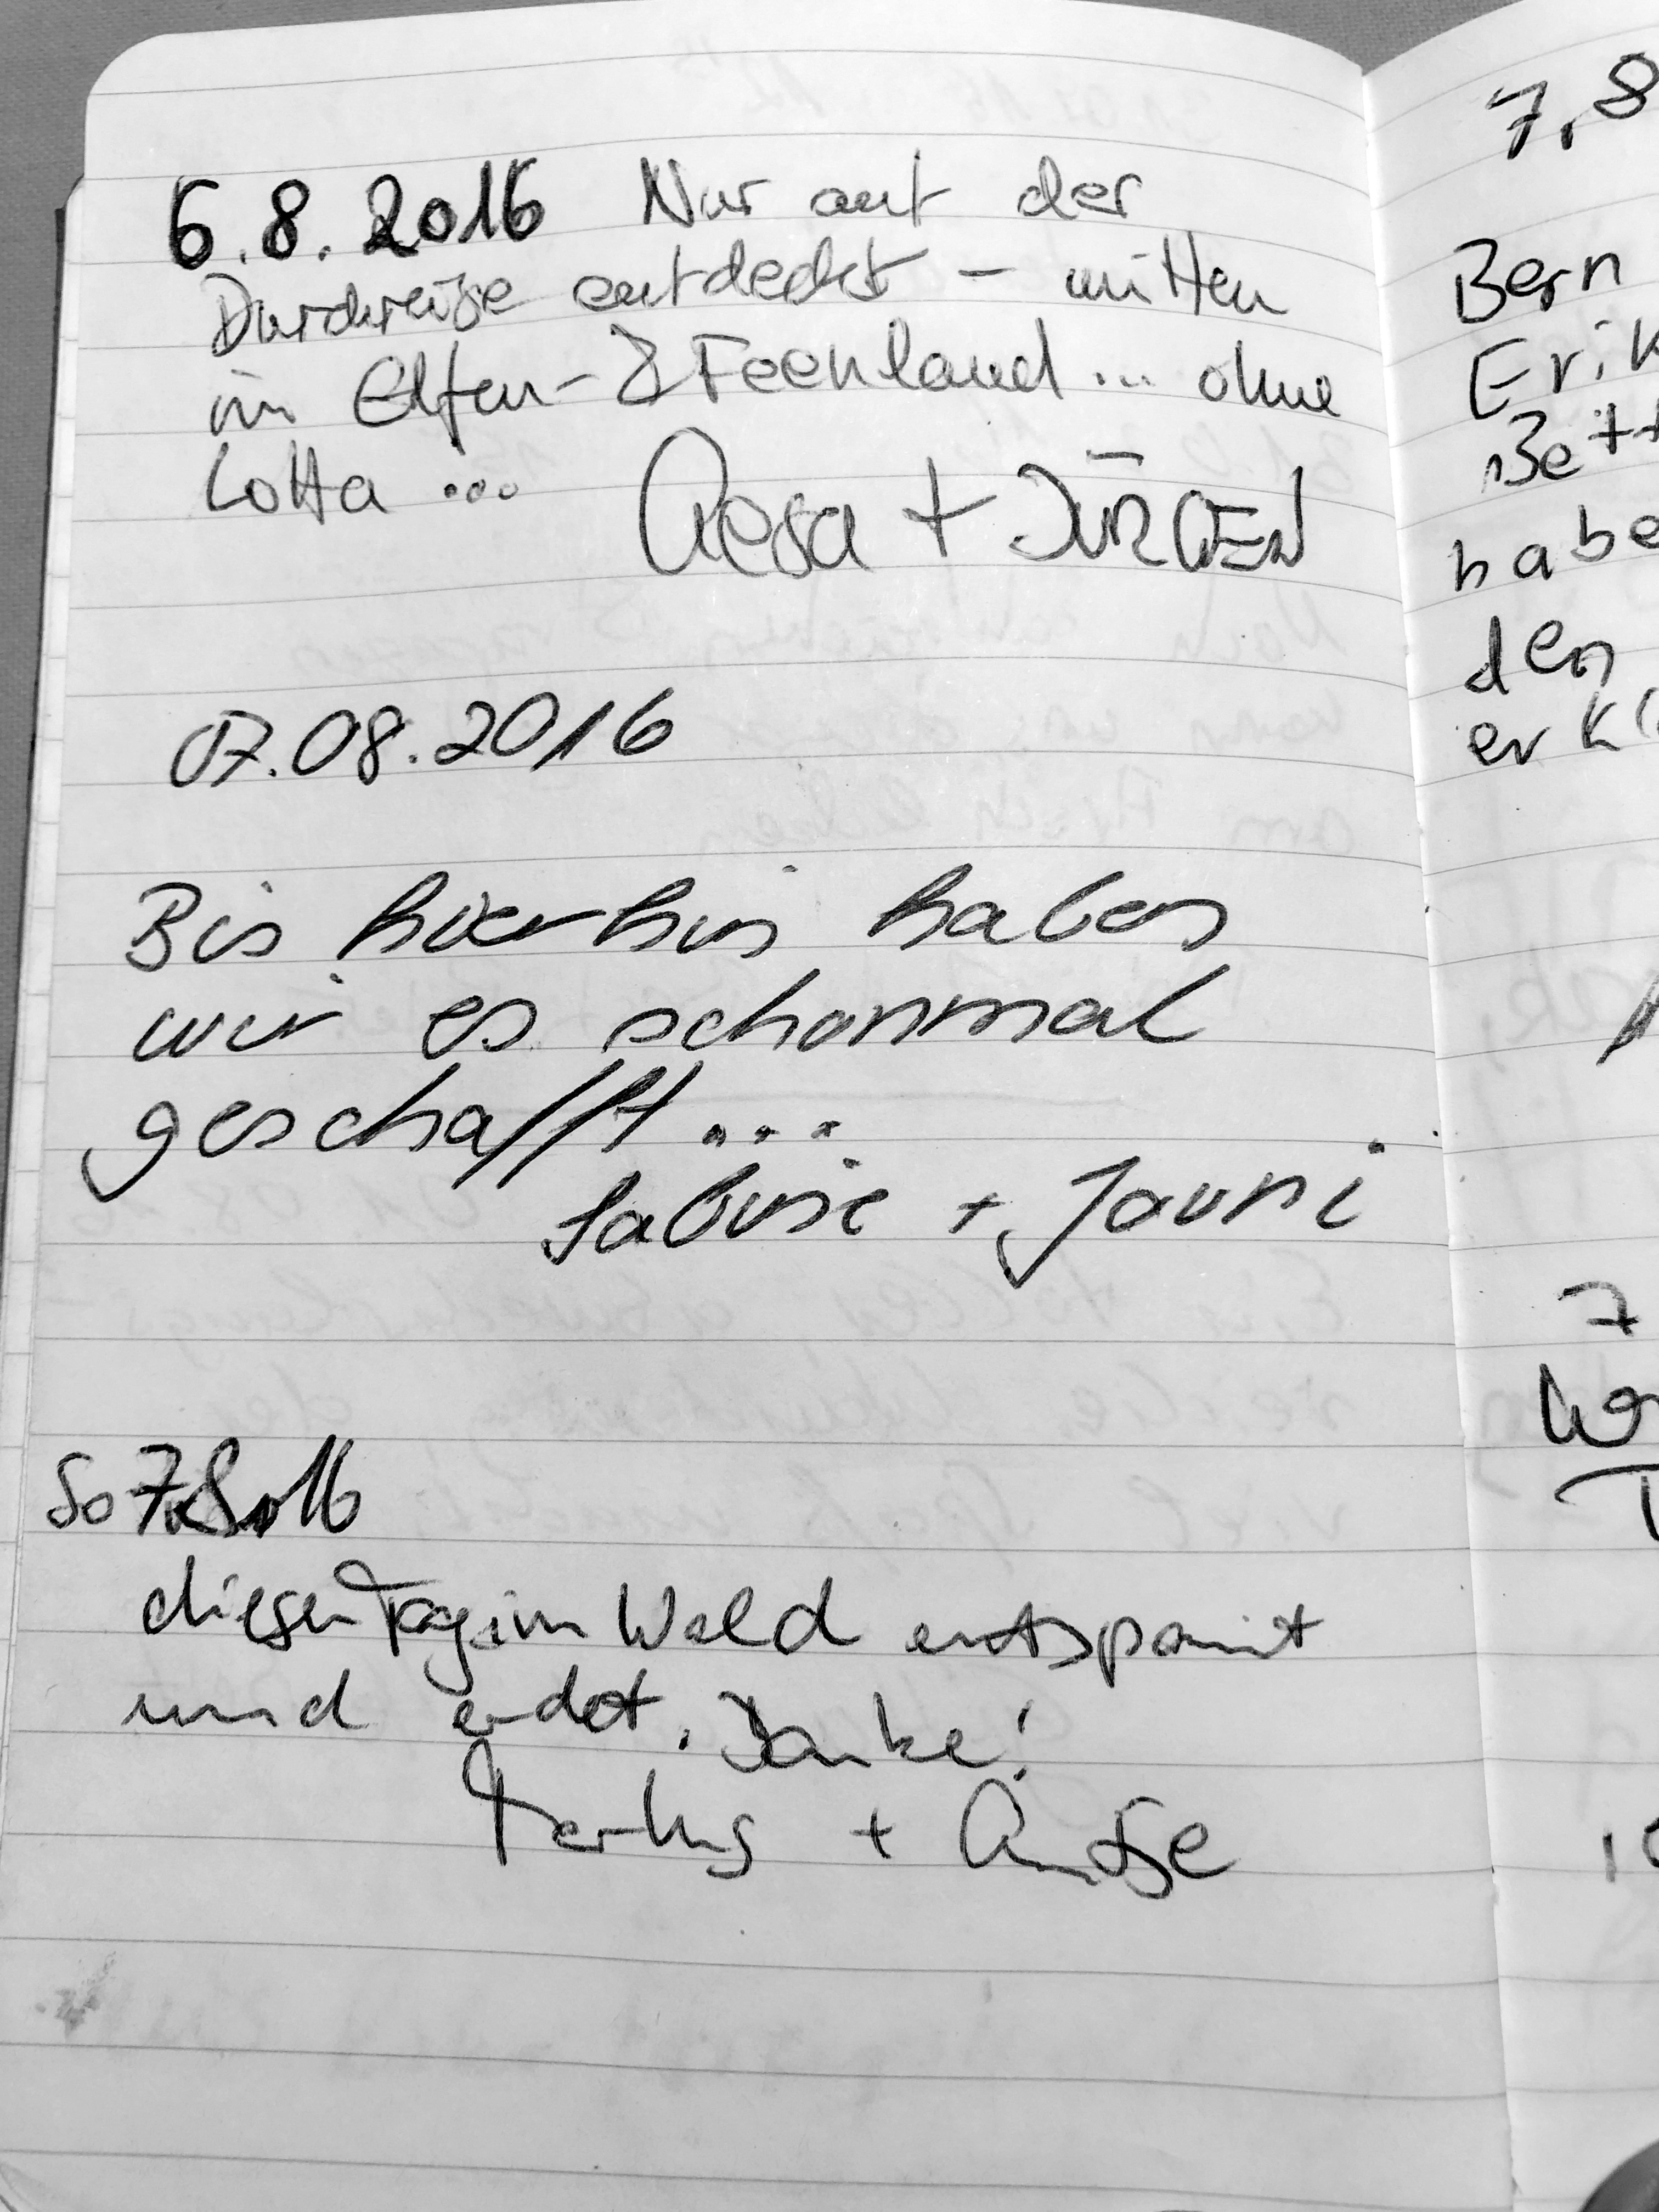 6.8.2016 Nur auf der
Durchreise entdeckt – mitten
im Elfen- & Feenland ... ohne
Lotta ...
+ JÜRGEN
07.08.2016
Bis hierhin haben
wir es schonmal
geschafft ...
Sabine + Janni
So 7.8.16
diesen Tag im Wald entspannt
und endet. Danke!
Markus + Antje
7.8
Bern
Erik
Bett
habe
den
erkl
7